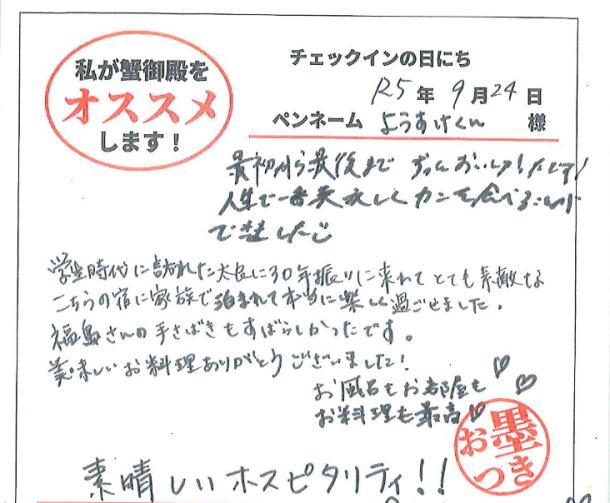 私が蟹御殿を
オススメ
します！
チェックインの日にち
R5年 9月24日
ペンネーム ようすけくん 様
最初から最後まで ずっとおいしかったです!
人生で一番美味しくカニを食べること
できました
学生時代に訪れた太良に30年振りに来れてとても素敵な
こちらの宿に家族で泊まれて本当に楽しく過ごせました。
福島さんの手さばきもすばらしかったです。
美味しいお料理ありがとうございました!
お風呂もお部屋も
お料理も最高♡
素晴しいホスピタリティ!!
お墨つき